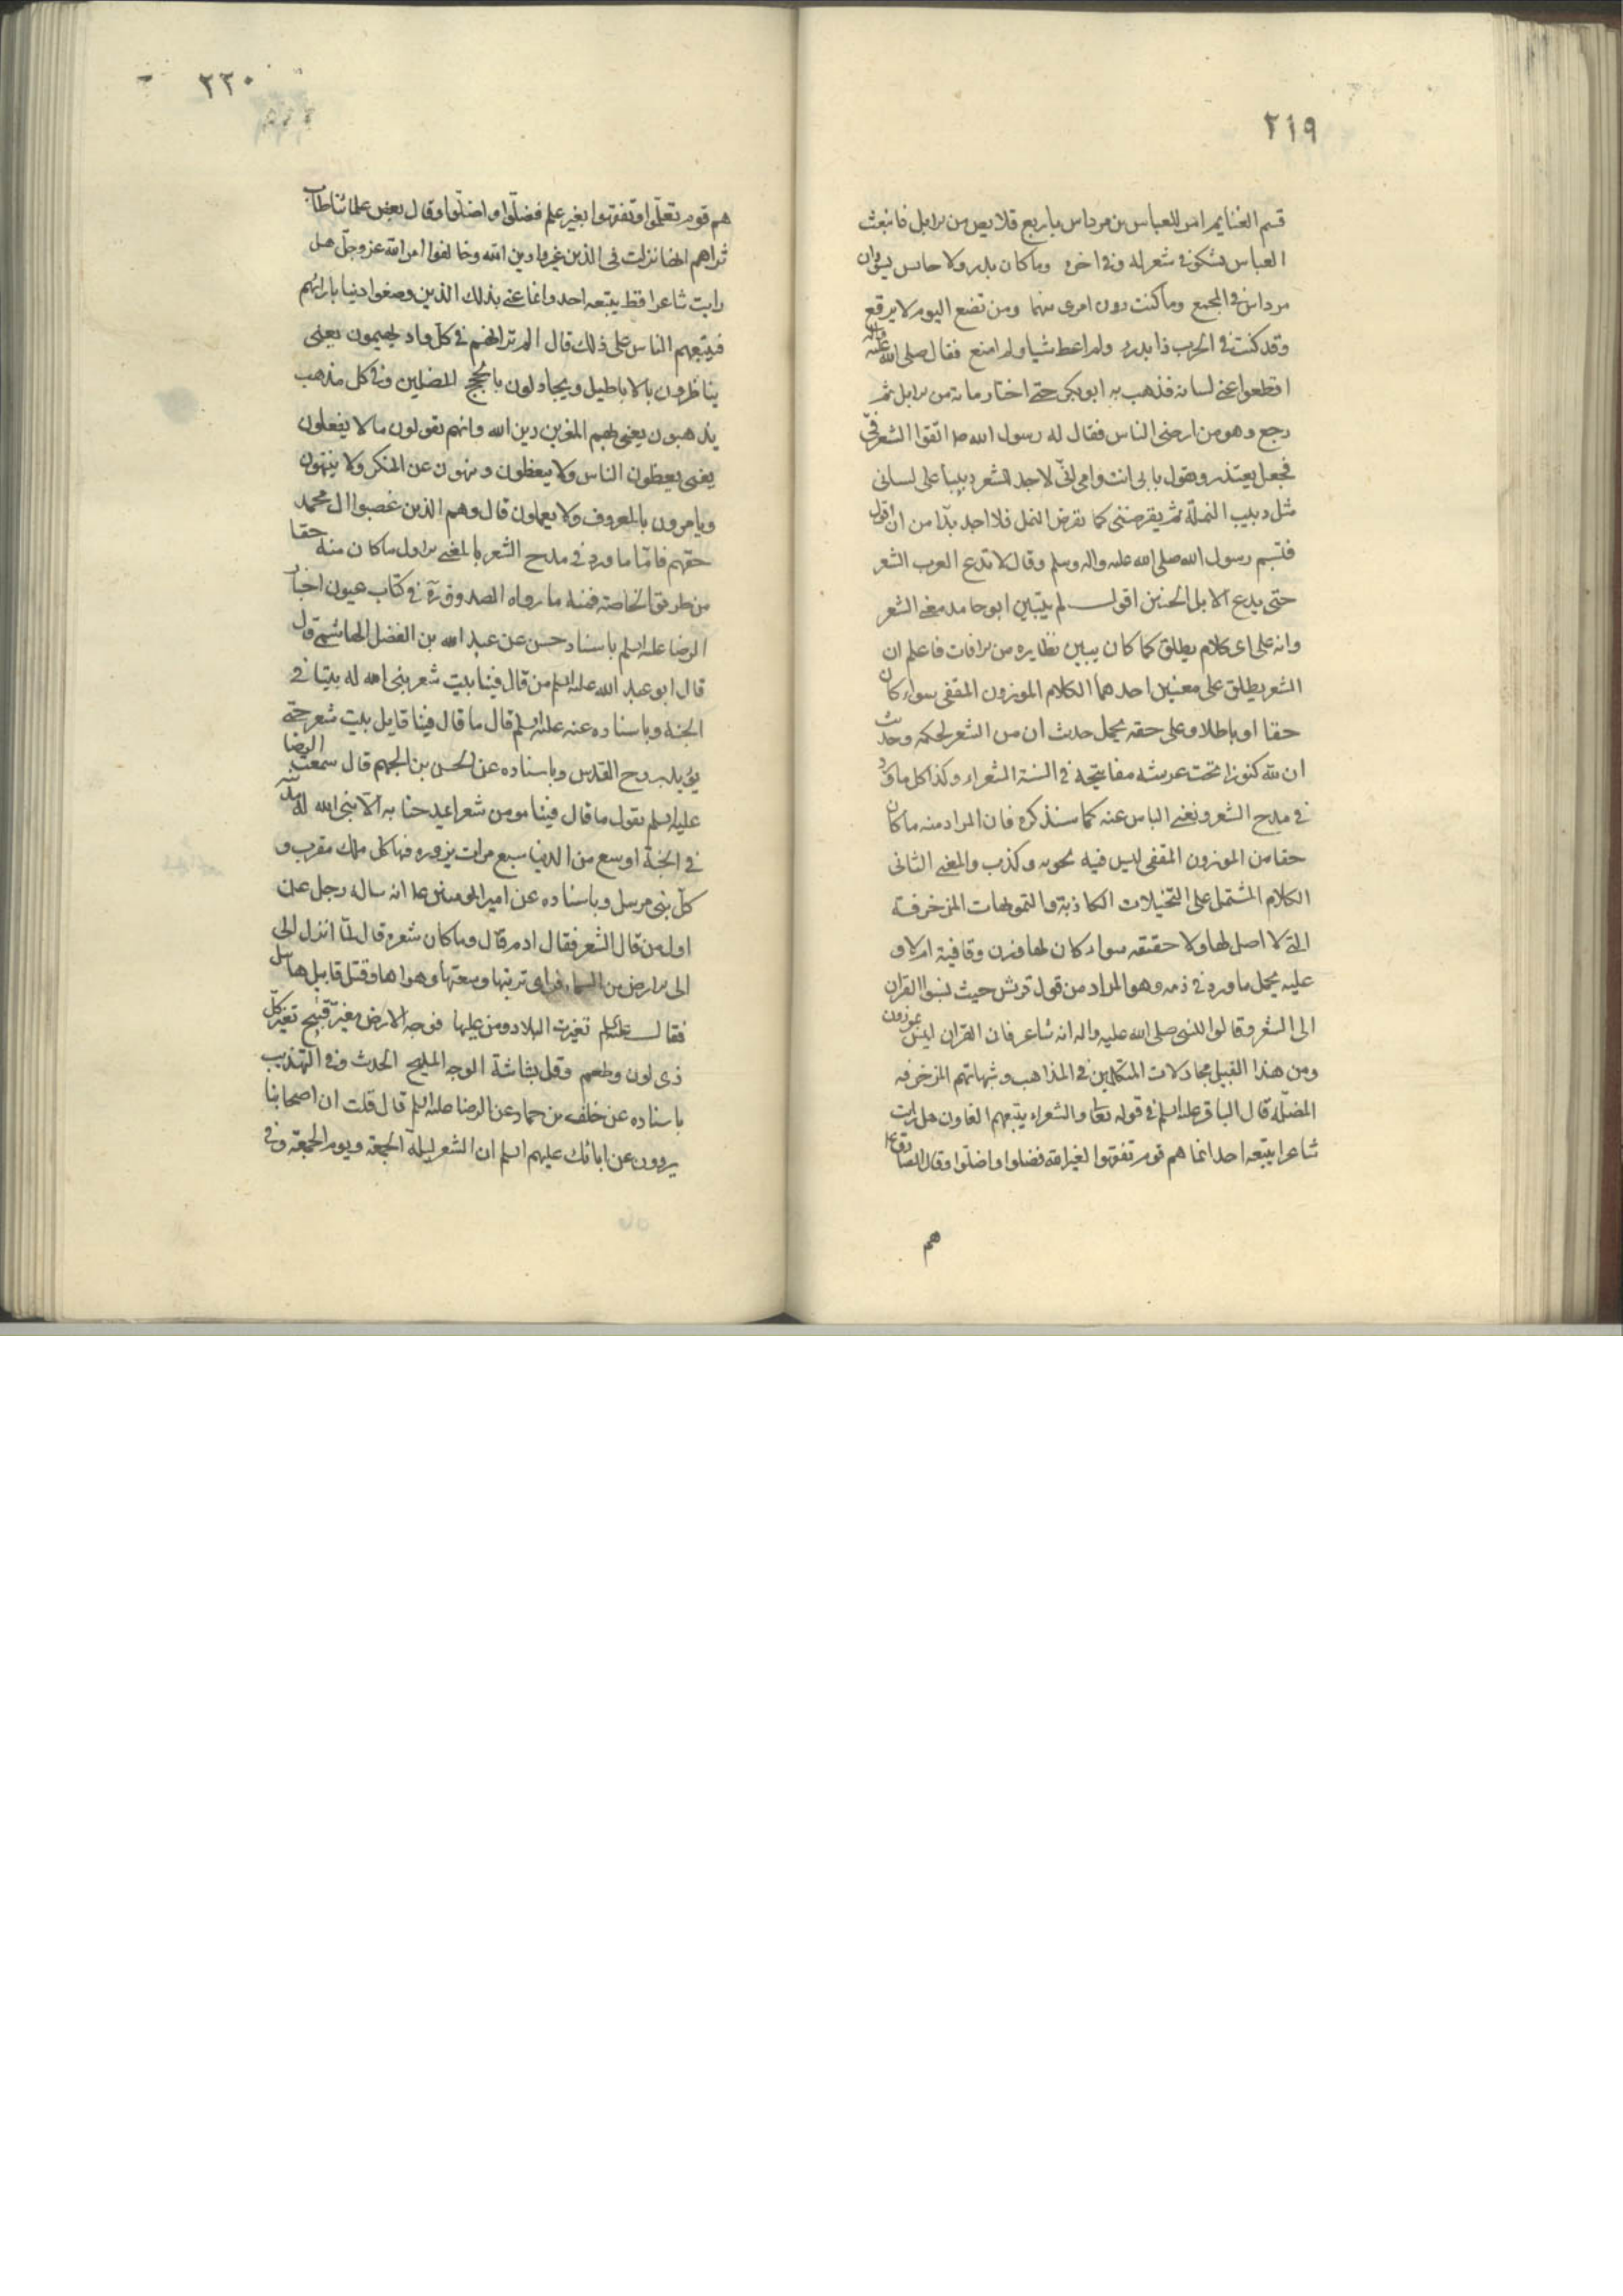 ٢١٩
قسم الغنايم امر للعباس بن مرداس باربع قلايص من الابل فانبعث
العباس يشكو في شعر له وفي اخره وما كان بدر ولا حابس يسودان
مرداس في المجمع وما كنت دون امرى منهما ومن تضع اليوم لا يرفع
وقد كنت في الحرب ذا بدرء ولم اعط شيئا ولم امنع فقال صلى الله عليه واله
اقطعوا عنى لسانه فذهب به ابو بكر حتى اختار مائة من الابل ثم
رجع وهو من ارضى الناس فقال له رسول الله ص اتقوا الشعر في
فجعل يعتذر ويقول بابى انت وامى انّى لاجد للشعر دبيبا على لسانى
مثل دبيب النملة ثم يقرصنى كما يقرص النمل فلا اجد بدّا من ان اقول
فتبسم رسول الله صلى الله عليه واله وسلم وقال لا تدع العرب الشعر
حتى يدع الابل الحنين اقول لم يتبين ابو حامد معنى الشعر
وانه على اى كلام يطلق كما كان يبين نظايره من الافات فاعلم ان
الشعر يطلق على معنيين احدهما الكلام الموزون المقفى سواء كان
حقا او باطلا وعلى حقه يحمل حديث ان من الشعر لحكمه وحديث
ان لله كنوزا تحت عرشه مفاتيحه في السنة الشعراء وكذا كل ما ورد
في مدح الشعر ونفى الباس عنه كما سنذكره فان المراد منه ما كان
حقا من الموزون المقفى ليس فيه تمويه وكذب والمعنى الثانى
الكلام المشتمل على التخيلات الكاذبة والتمويهات المزخرفة
التى لا اصل لها ولا حقيقه سواء كان لها وزن وقافية ام لا و
عليه يحمل ما ورد في ذمه وهو المراد من قول قريش حيث نسبوا القران
الى الشعر وقالوا للنبى صلى الله عليه واله انه شاعر فان القران ليس بموزون
ومن هذا القبيل مجادلات المتكلمين في المذاهب وشبهاتهم المزخرفه
المضلّه قال الباقر عليه السلم في قوله تعا والشعراء يتبعهم الغاون هل رايت
شاعرا يتبعه احد انما هم قوم تفقهوا لغير الله فضلوا واضلّوا وقال الصادق ع
هم
٢٢٠
هم قوم تعلّموا وتفقهوا بغير علم فضلّوا واضلّوا وقال بعض علمائنا طاب
ثراهم انها نزلت في الذين غيروا دين الله وخالفوا امر الله عز وجلّ هل
رايت شاعرا قط يتبعه احد وانما عنى بذلك الذين وضعوا دينا بارائهم
فيتبعهم الناس على ذلك قال الم تر انهم في كلّ واد يهيمون يعنى
يناظرون بالاباطيل ويجادلون بالحجج المضلين وفي كل مذهب
يذهبون يعنى بهم المغيرين دين الله وانهم يقولون ما لا يفعلون
يعنى يعظون الناس ولا يتعظون وينهون عن المنكر ولا ينتهون
ويامرون بالمعروف ولا يعملون قال وهم الذين غصبوا ال محمد
حقهم فامّا ما ورد في مدح الشعر بالمعنى الاول ما كان منه حقا
من طريق الخاصة فمنه ما رواه الصدوق ره في كتاب عيون اخبار
الرضا عليه السلم باسناد حسن عن عبد الله بن الفضل الهاشمى قال
قال ابو عبد الله عليه السلم من قال فينا بيت شعر بنى الله له بيتا في
الجنة وباسناده عنه عليه السلم قال ما قال فينا قايل بيت شعر حتى
يؤيد بروح القدس وباسناده عن الحسن بن الجهم قال سمعت الرضا
عليه السلم يقول ما قال فينا مومن شعرا يمدحنا به الّا بنى الله له مدينة
في الجنة اوسع من الدنيا سبع مرات يزوره فيها كل ملك مقرب و
كلّ نبى مرسل وباسناده عن امير المومنين ع انه ساله رجل عن
اول من قال الشعر فقال ادم قال وما كان شعره قال لمّا انزل الى
الى الارض من السماء فراى تربتها وسعتها وهواها وقتل قابيل هابيل
فقال عليه السلم تغيرت البلاد ومن عليها فوجه الارض مغبرّ قبيح تغير كلّ
ذى لون وطعم وقلّ بشاشة الوجه المليح الحديث وفي التهذيب
باسناده عن خلف بن حماد عن الرضا عليه السلم قال قلت ان اصحابنا
يروون عن ابائك عليهم السلم ان الشعر ليلة الجمعة ويوم الجمعة وفي